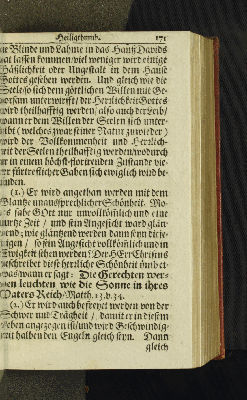 Heiligthumb. 171
die Blinde und Lahme in das Hauß Davids
hat lassen kommen/ viel weniger wird einige
Häßlichkeit oder Ungestalt in dem Hause
Gottes gesehen werden. Und gleich wie die
Seele so sich dem göttlichen Willen mit Ge-
horsam unterwirfft/ der Herrlichkeit Gottes
wird theilhafftig werden/ also auch der Leib/
wann er dem Willen der Seelen sich unter-
gibt (welches zwar seiner Natur zuwider)
wird der Vollkommenheit und Herrlich-
keit der Seelen theilhafftig werden/ wodurch
er in einem höchst-florirenden Zustande vie-
ler fürtrefflicher Gaben sich ewiglich wird be-
finden.
(1.) Er wird angethan werden mit dem
Glantze unaussprechlicher Schönheit. Mo-
ses sahe GOtt nur unvollkömlich und eine
kurtze Zeit/ und sein Angesicht ward glän-
tzend; wie gläntzend werden dann seyn die je-
nigen/ so sein Angesicht vollkömlich und in
Ewigkeit sehen werden? Der HErr Christus
beschreibet diese herrliche Schönheit in etwas
wann er sagt: Die Gerechten wer-
den leuchten wie die Sonne in ihres
Vaters Reich/ Matth. 13. v. 34.
(2.) Er wird auch befreyet werden von der
Schwer und Trägheit/ damit er in diesem
Leben angezogen ist/ und wird Geschwindig-
keit halben den Engeln gleich seyn. Dann
gleich